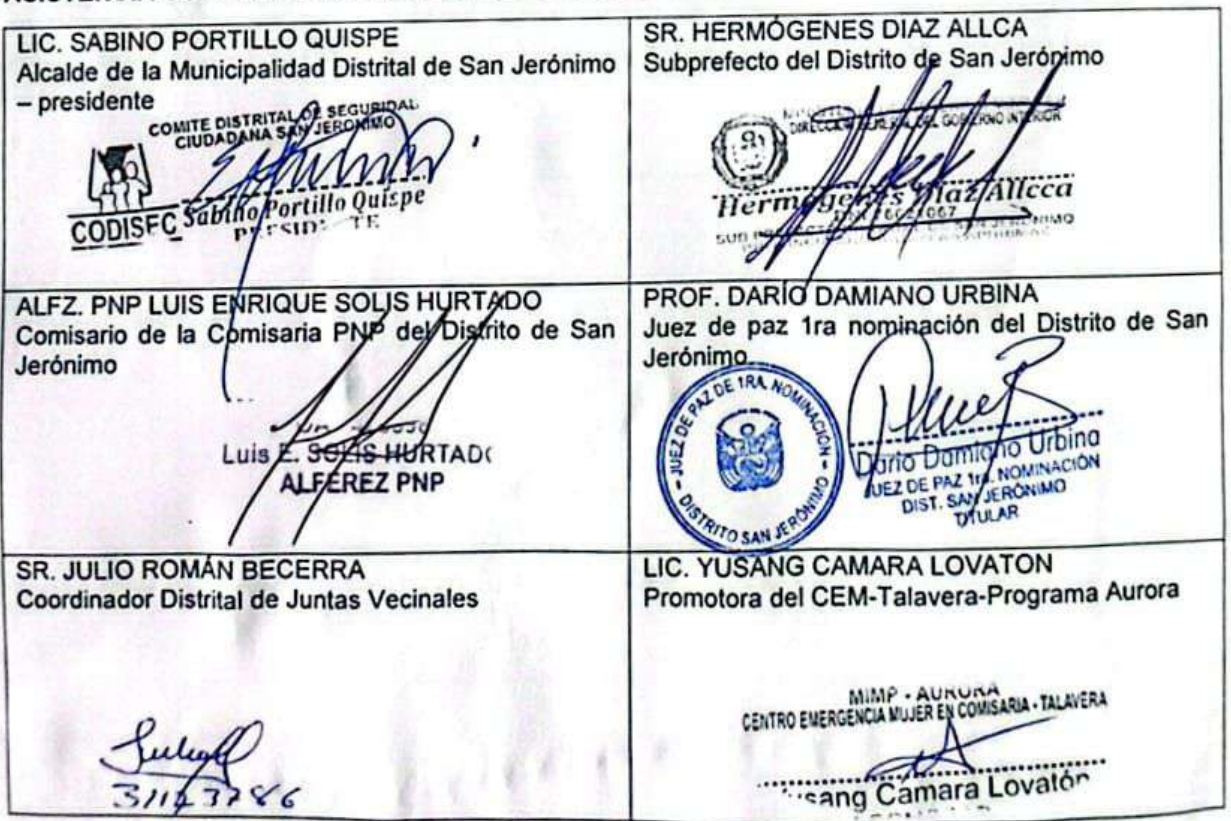 LIC. SABINO PORTILLO QUISPE
Alcalde de la Municipalidad Distrital de San Jerónimo
– presidente
COMITE DISTRITAL DE SEGURIDAD
CIUDADANA SAN JERONIMO
CODISEC
Sabino Portillo Quispe
SR. HERMÓGENES DIAZ ALLCA
Subprefecto del Distrito de San Jerónimo
DEL GOBIERNO INTERIOR
Hermogenes Diaz Allcca
ALFZ. PNP LUIS ENRIQUE SOLIS HURTADO
Comisario de la Comisaria PNP del Distrito de San
Jerónimo
Luis E. SOLIS HURTADO
ALFEREZ PNP
PROF. DARÍO DAMIANO URBINA
Juez de paz 1ra nominación del Distrito de San
Jerónimo
JUEZ DE PAZ DE 1RA. NOMINACIÓN -
DISTRITO SAN JERÓNIMO
Dario Damiano Urbina
JUEZ DE PAZ 1ra. NOMINACIÓN
DIST. SAN JERÓNIMO
TITULAR
SR. JULIO ROMÁN BECERRA
Coordinador Distrital de Juntas Vecinales
LIC. YUSANG CAMARA LOVATON
Promotora del CEM-Talavera-Programa Aurora
MIMP - AURORA
CENTRO EMERGENCIA MUJER EN COMISARIA - TALAVERA
Camara Lovatón